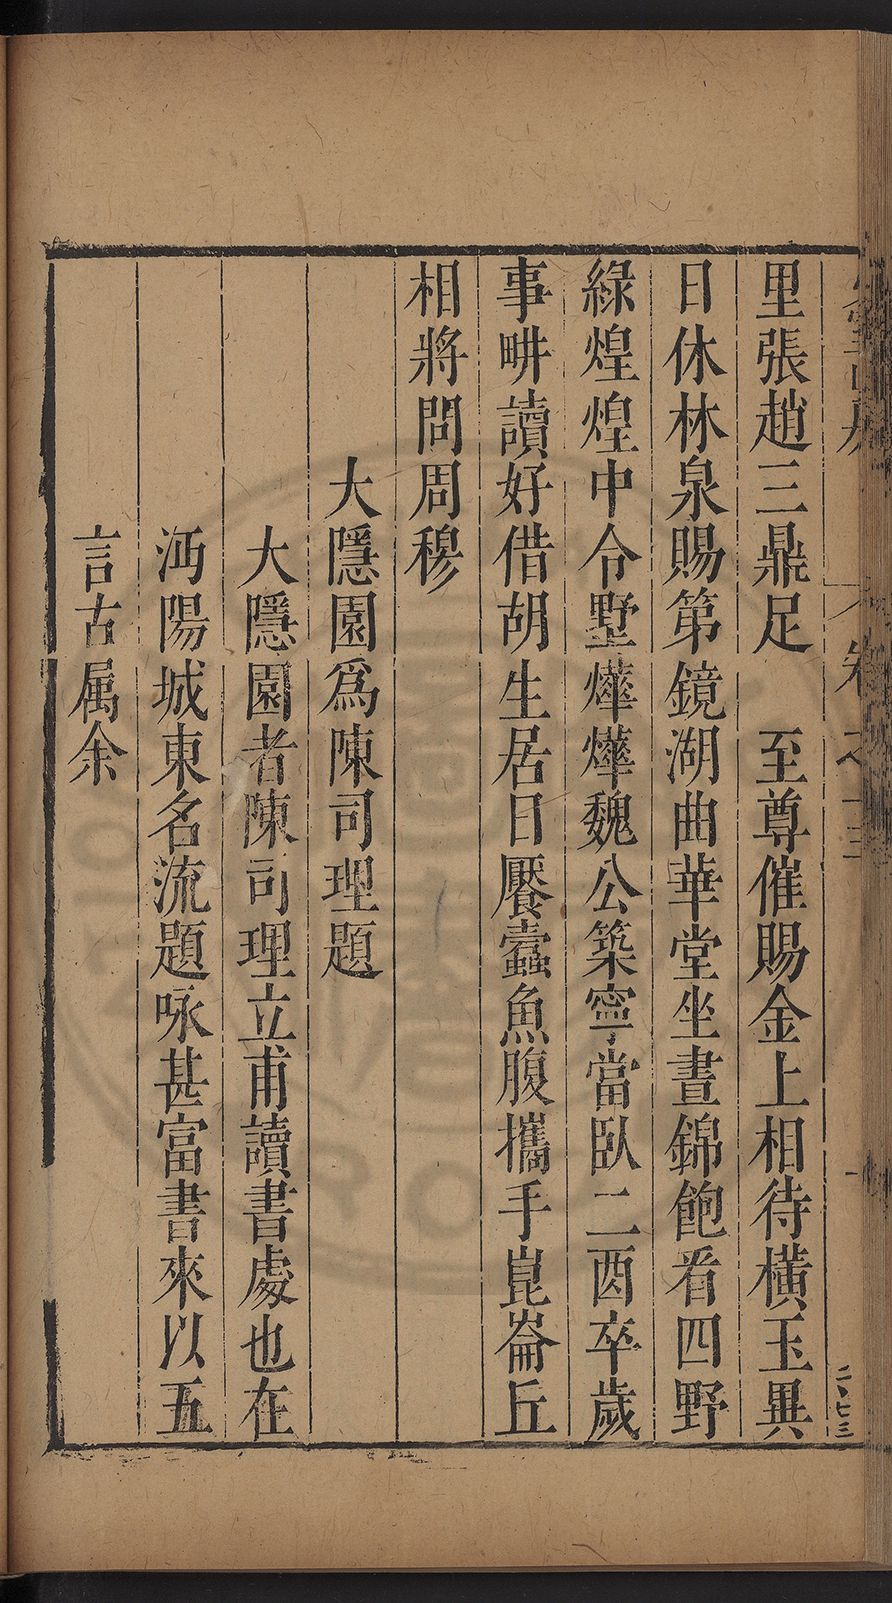 里張趙三鼎足　至尊催賜金上相待橫玉異
日休林泉賜第鏡湖曲華堂坐晝錦飽看四野
綠煌煌中令墅爗爗魏公築寧當臥二酉卒歲
事畊讀好借胡生居日饜蠹魚腹攜手崑崙丘
相將問周穆
大隱園爲陳司理題
大隱園者陳司理立甫讀書處也在
沔陽城東名流題咏甚富書來以五
言古属余